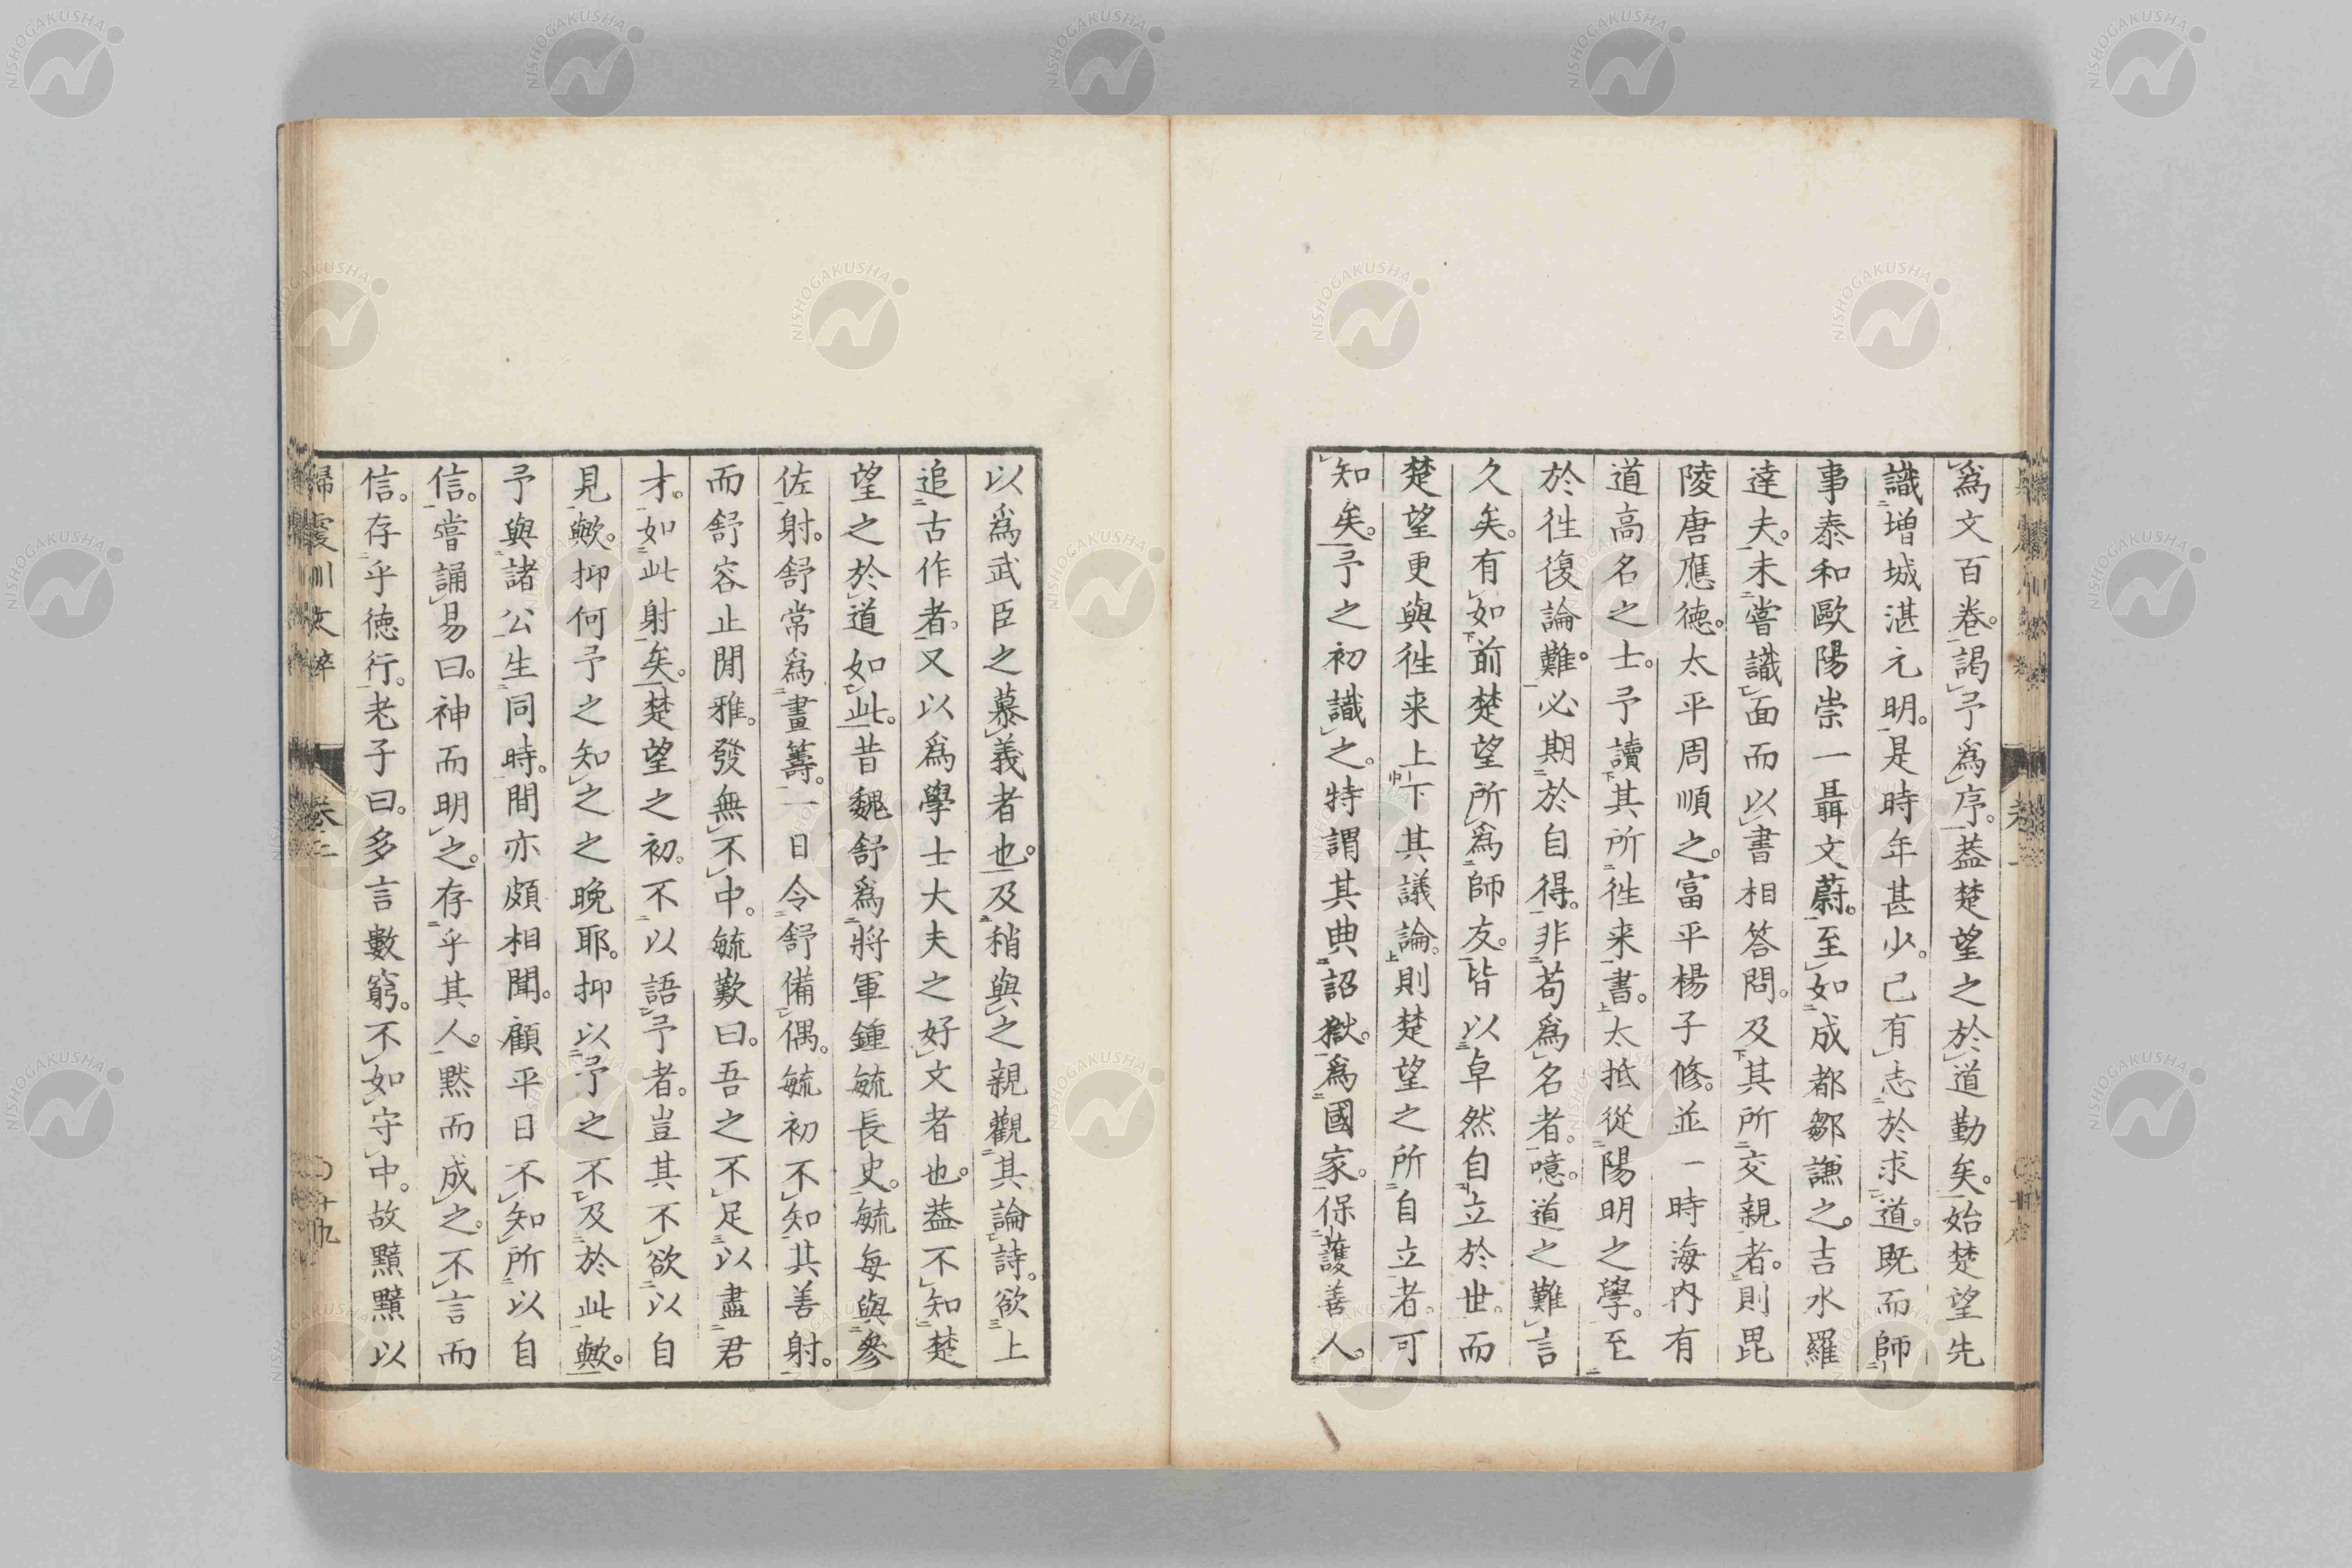 爲文百卷。謁予爲序。葢楚望之於道勤矣。始楚望先
識增城湛元明。是時年甚少。已有志於求道。既而師
事泰和歐陽崇一聶文蔚。至如成都鄒謙之。吉水羅
達夫。未嘗識面而以書相答問。及其所交親者。則毘
陵唐應徳。太平周順之。富平楊子修。並一時海内有
道高名之士。予讀其所徃来書。太抵從陽明之學。至
於徃復論難。必期於自得。非苟爲名者。噫。道之難言
久矣。有如前楚望所爲師友。皆以卓然自立於世。而
楚望更與徃来上下其議論。則楚望之所自立者。可
知矣。予之初識之。特謂其典詔獄。爲國家。保護善人。
以爲武臣之慕義者也。及稍與之親觀其論詩。欲上
追古作者。又以爲學士大夫之好文者也。葢不知楚
望之於道如此。昔魏舒爲將軍鍾毓長史。毓每與參
佐射。舒常爲畫籌。一日令舒備偶。毓初不知其善射。
而舒容止閒雅。發無不中。毓歎曰。吾之不足以盡君
才。如此射矣。楚望之初。不以語予者。豈其不欲以自
見歟。抑何予之知之之晩耶。抑以予之不及於此歟。
予與諸公生同時。間亦頗相聞。顧平日不知所以自
信。嘗誦易曰。神而明之。存乎其人。黙而成之。不言而
信。存乎徳行。老子曰。多言數窮。不如守中。故黮黮以
歸震川文粹 卷三 〇十九